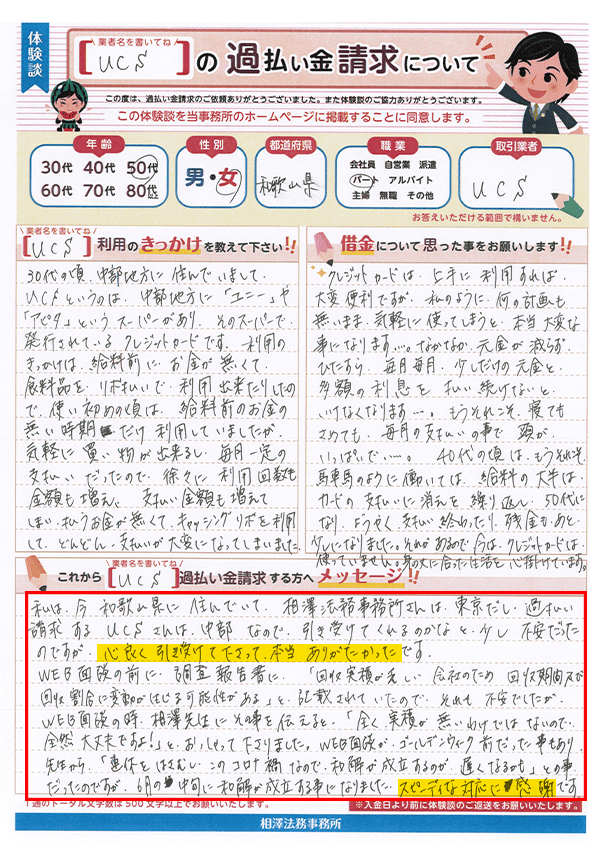 体験談
業者名を書いてね
[UCS]の過払い金請求について
この度は、過払い金請求のご依頼ありがとうございました。また体験談のご協力ありがとうございます。
この体験談を当事務所のホームページに掲載することに同意します。
年齢
30代 40代 50代
60代 70代 80代
性別
男・女
都道府県
和歌山県
職業
会社員 自営業 派遣
パート アルバイト
主婦 無職 その他
取引業者
UCS
お答えいただける範囲で構いません。
業者名を書いてね
[UCS]利用のきっかけを教えて下さい!!
30代の頃、中部地方に住んでいまして、
UCSというのは、中部地方に「ユニー」や
「アピタ」というスーパーがあり、そのスーパーで、
発行されているクレジットカードです。利用の
きっかけは、給料前にお金が無くて、
食料品を、リボ払いで、利用出来たりしたの
で、使い初めの頃は、給料前のお金の
無い時期だけ利用していましたが、
気軽に買い物が出来るし、毎月一定の
支払いだったので、徐々に利用回数も
金額も増え、支払い金額も増えて
しまい、払うお金が無くて、キャッシングリボを利用
して、どんどん、支払いが大変になってしまいました。
借金について思った事をお願いします!!
クレジットカードは、上手に利用すれば、
大変便利ですが、私のように、何の計画も
無いまま、気軽に使ってしまうと、本当大変な
事になります…。なかなか、元金が減らず、
ひたすら、毎月毎月、少しだけの元金と、
多額の利息を払い続けないと、
いけなくなります…。もうそれこそ、寝ても
さめても、毎月の支払いの事で頭が、
いっぱいで…。40代の頃は、もうそれこそ、
馬車馬のように働いては、給料の大半は、
カードの支払いに消えを繰り返し、50代に
なり、ようやく支払い終わったり、残金もあと、
少しになりました。それがあるので今は、クレジットカードは、
使っていません。身の丈に合った生活を心掛けています。
業者名を書いてね
これから[UCS]過払い金請求する方へメッセージ!!
私は、今、和歌山県に住んでいて、相澤法務事務所さんは、東京だし、過払い
請求するUCSさんは、中部なので、引き受けてくれるのかなと、少し不安だった
のですが、心良く引き受けて下さって、本当ありがたかったです。
WEB面談の前に、調査報告書に、「回収実績が乏しい会社のため回収期間及び
回収割合に変動がはじる可能性がある」と、記載されていたので、それも不安でしたが、
WEB面談の時、相澤先生にその事を伝えると、「全く実績が無いわけではないので、
全然大丈夫ですよ!」と、おっしゃって下さりました。WEB面談が、ゴールデンウィーク前だった事もあり、
先生から、「連休をはさむし、このコロナ禍なので、和解が成立するのが、遅くなるかも」との事
だったのですが、6月の中旬に和解が成立する事になりました。スピーディな対応に感謝です。
1通のトータル文字数は500文字以上でお願いいたします。
※入金日より前に体験談のご返送をお願いいたします。
相澤法務事務所